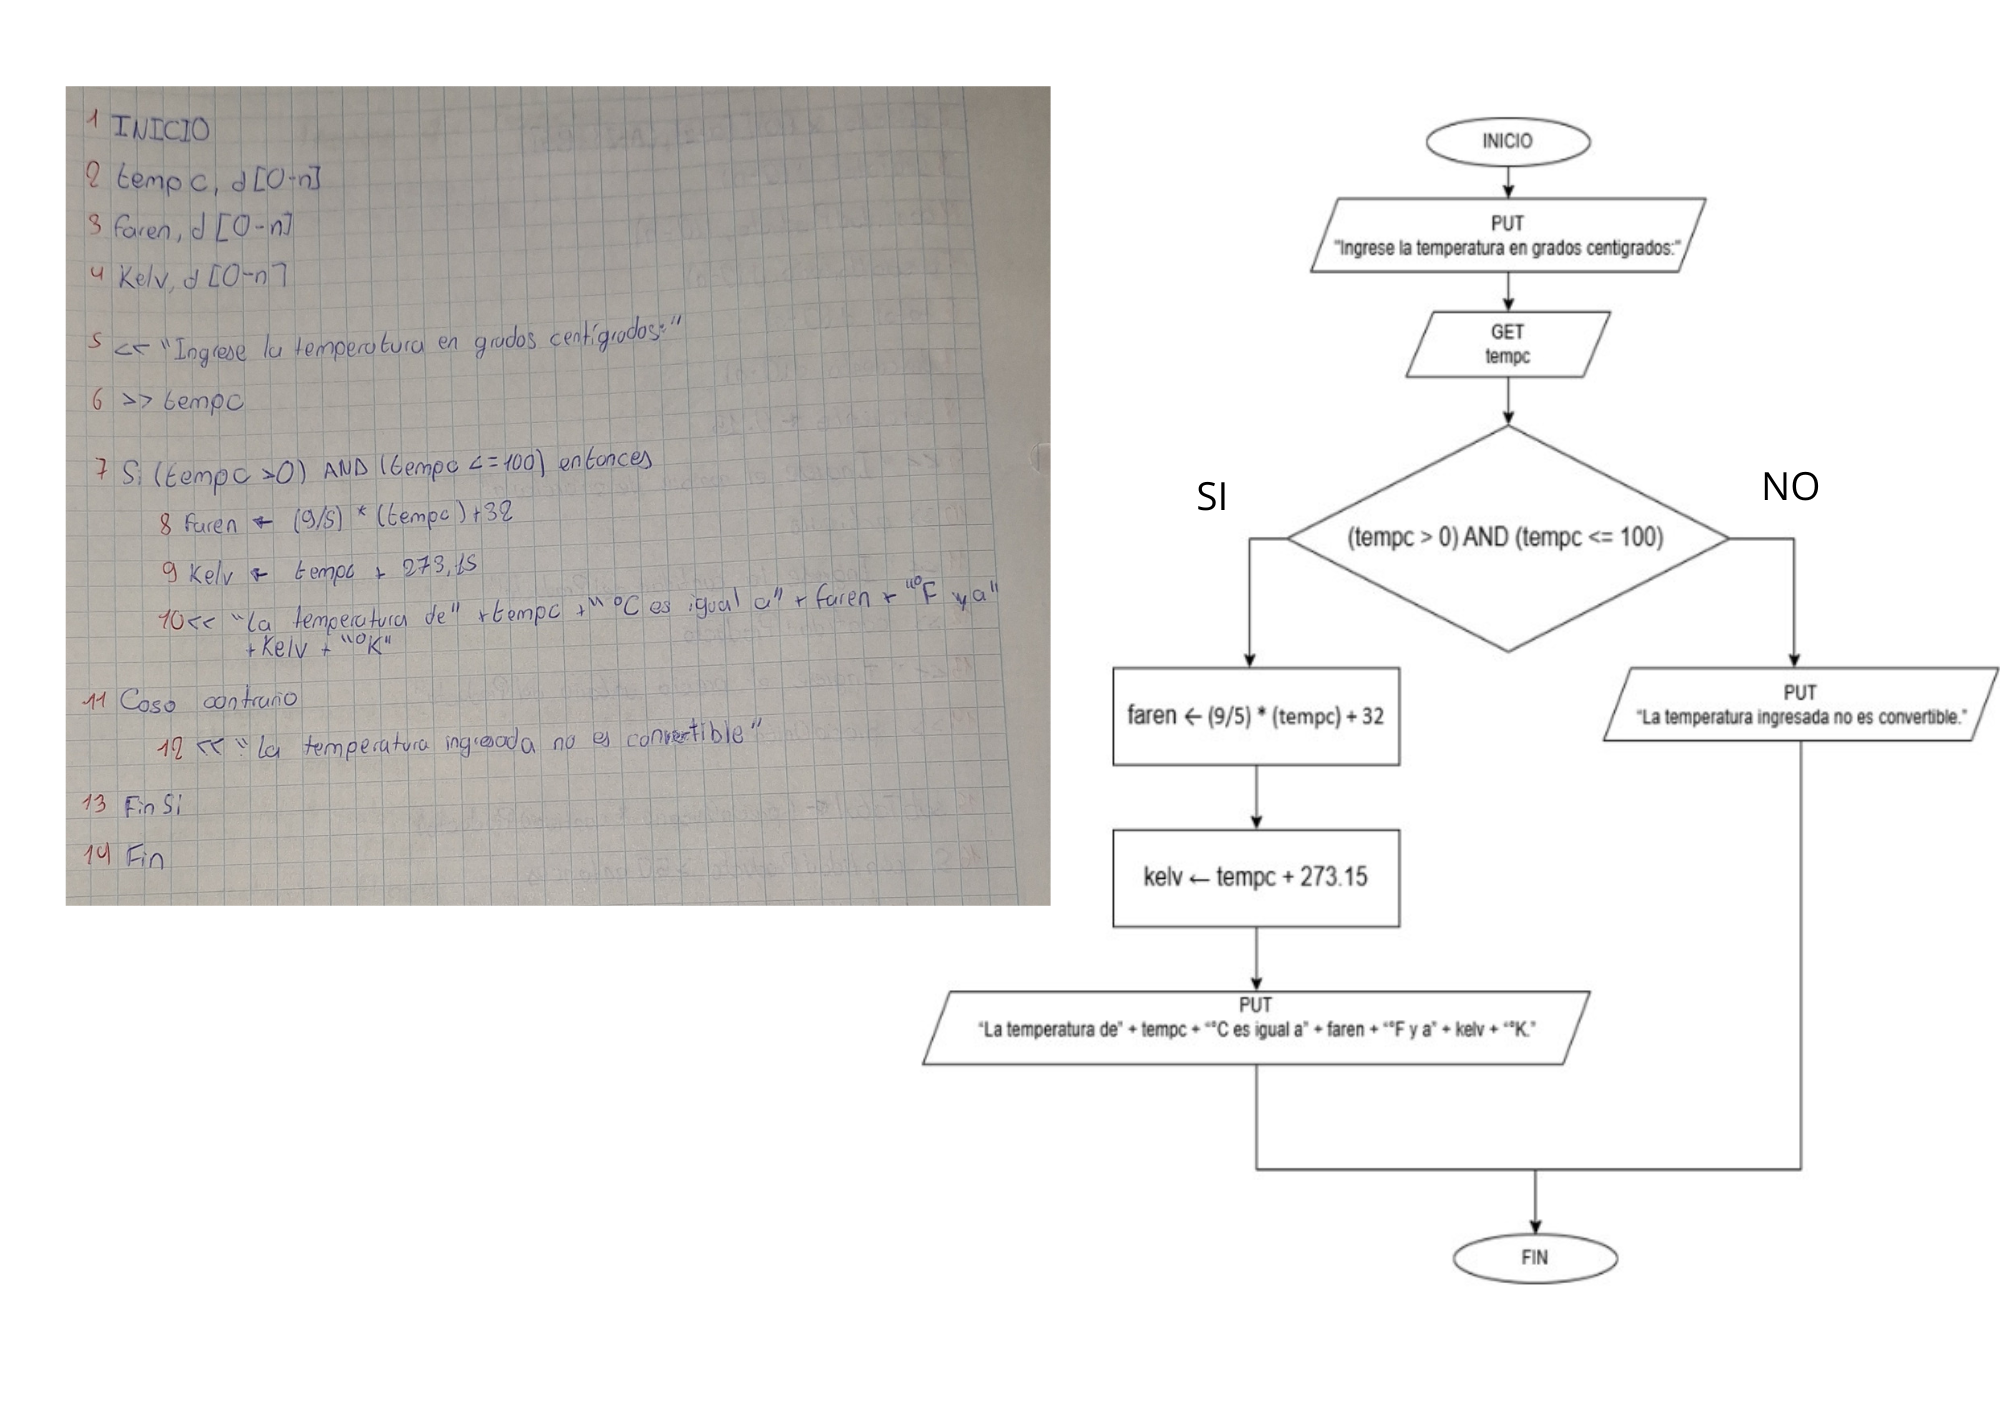 1 INICIO
2 tempc, d[0-n]
3 faren, d[0-n]
4 Kelv, d[0-n]
5 << "Ingrese la temperatura en grados centígrados:"
6 >> tempc
7 Si (tempc >0) AND (tempc <=100) entonces
8 faren ← (9/5) * (tempc)+32
9 Kelv ← tempc + 273,15
10<< "La temperatura de" +tempc +"°C es igual a" + faren + "°F y a"
+Kelv + "°K"
11 Caso contrario
12 << "La temperatura ingresada no es convertible"
13 Fin Si
14 Fin
INICIO
PUT
"Ingrese la temperatura en grados centigrados:"
GET
tempc
SI
NO
(tempc > 0) AND (tempc <= 100)
faren ← (9/5) * (tempc) + 32
PUT
"La temperatura ingresada no es convertible."
kelv ← tempc + 273.15
PUT
"La temperatura de" + tempc + "°C es igual a" + faren + "°F y a" + kelv + "°K."
FIN